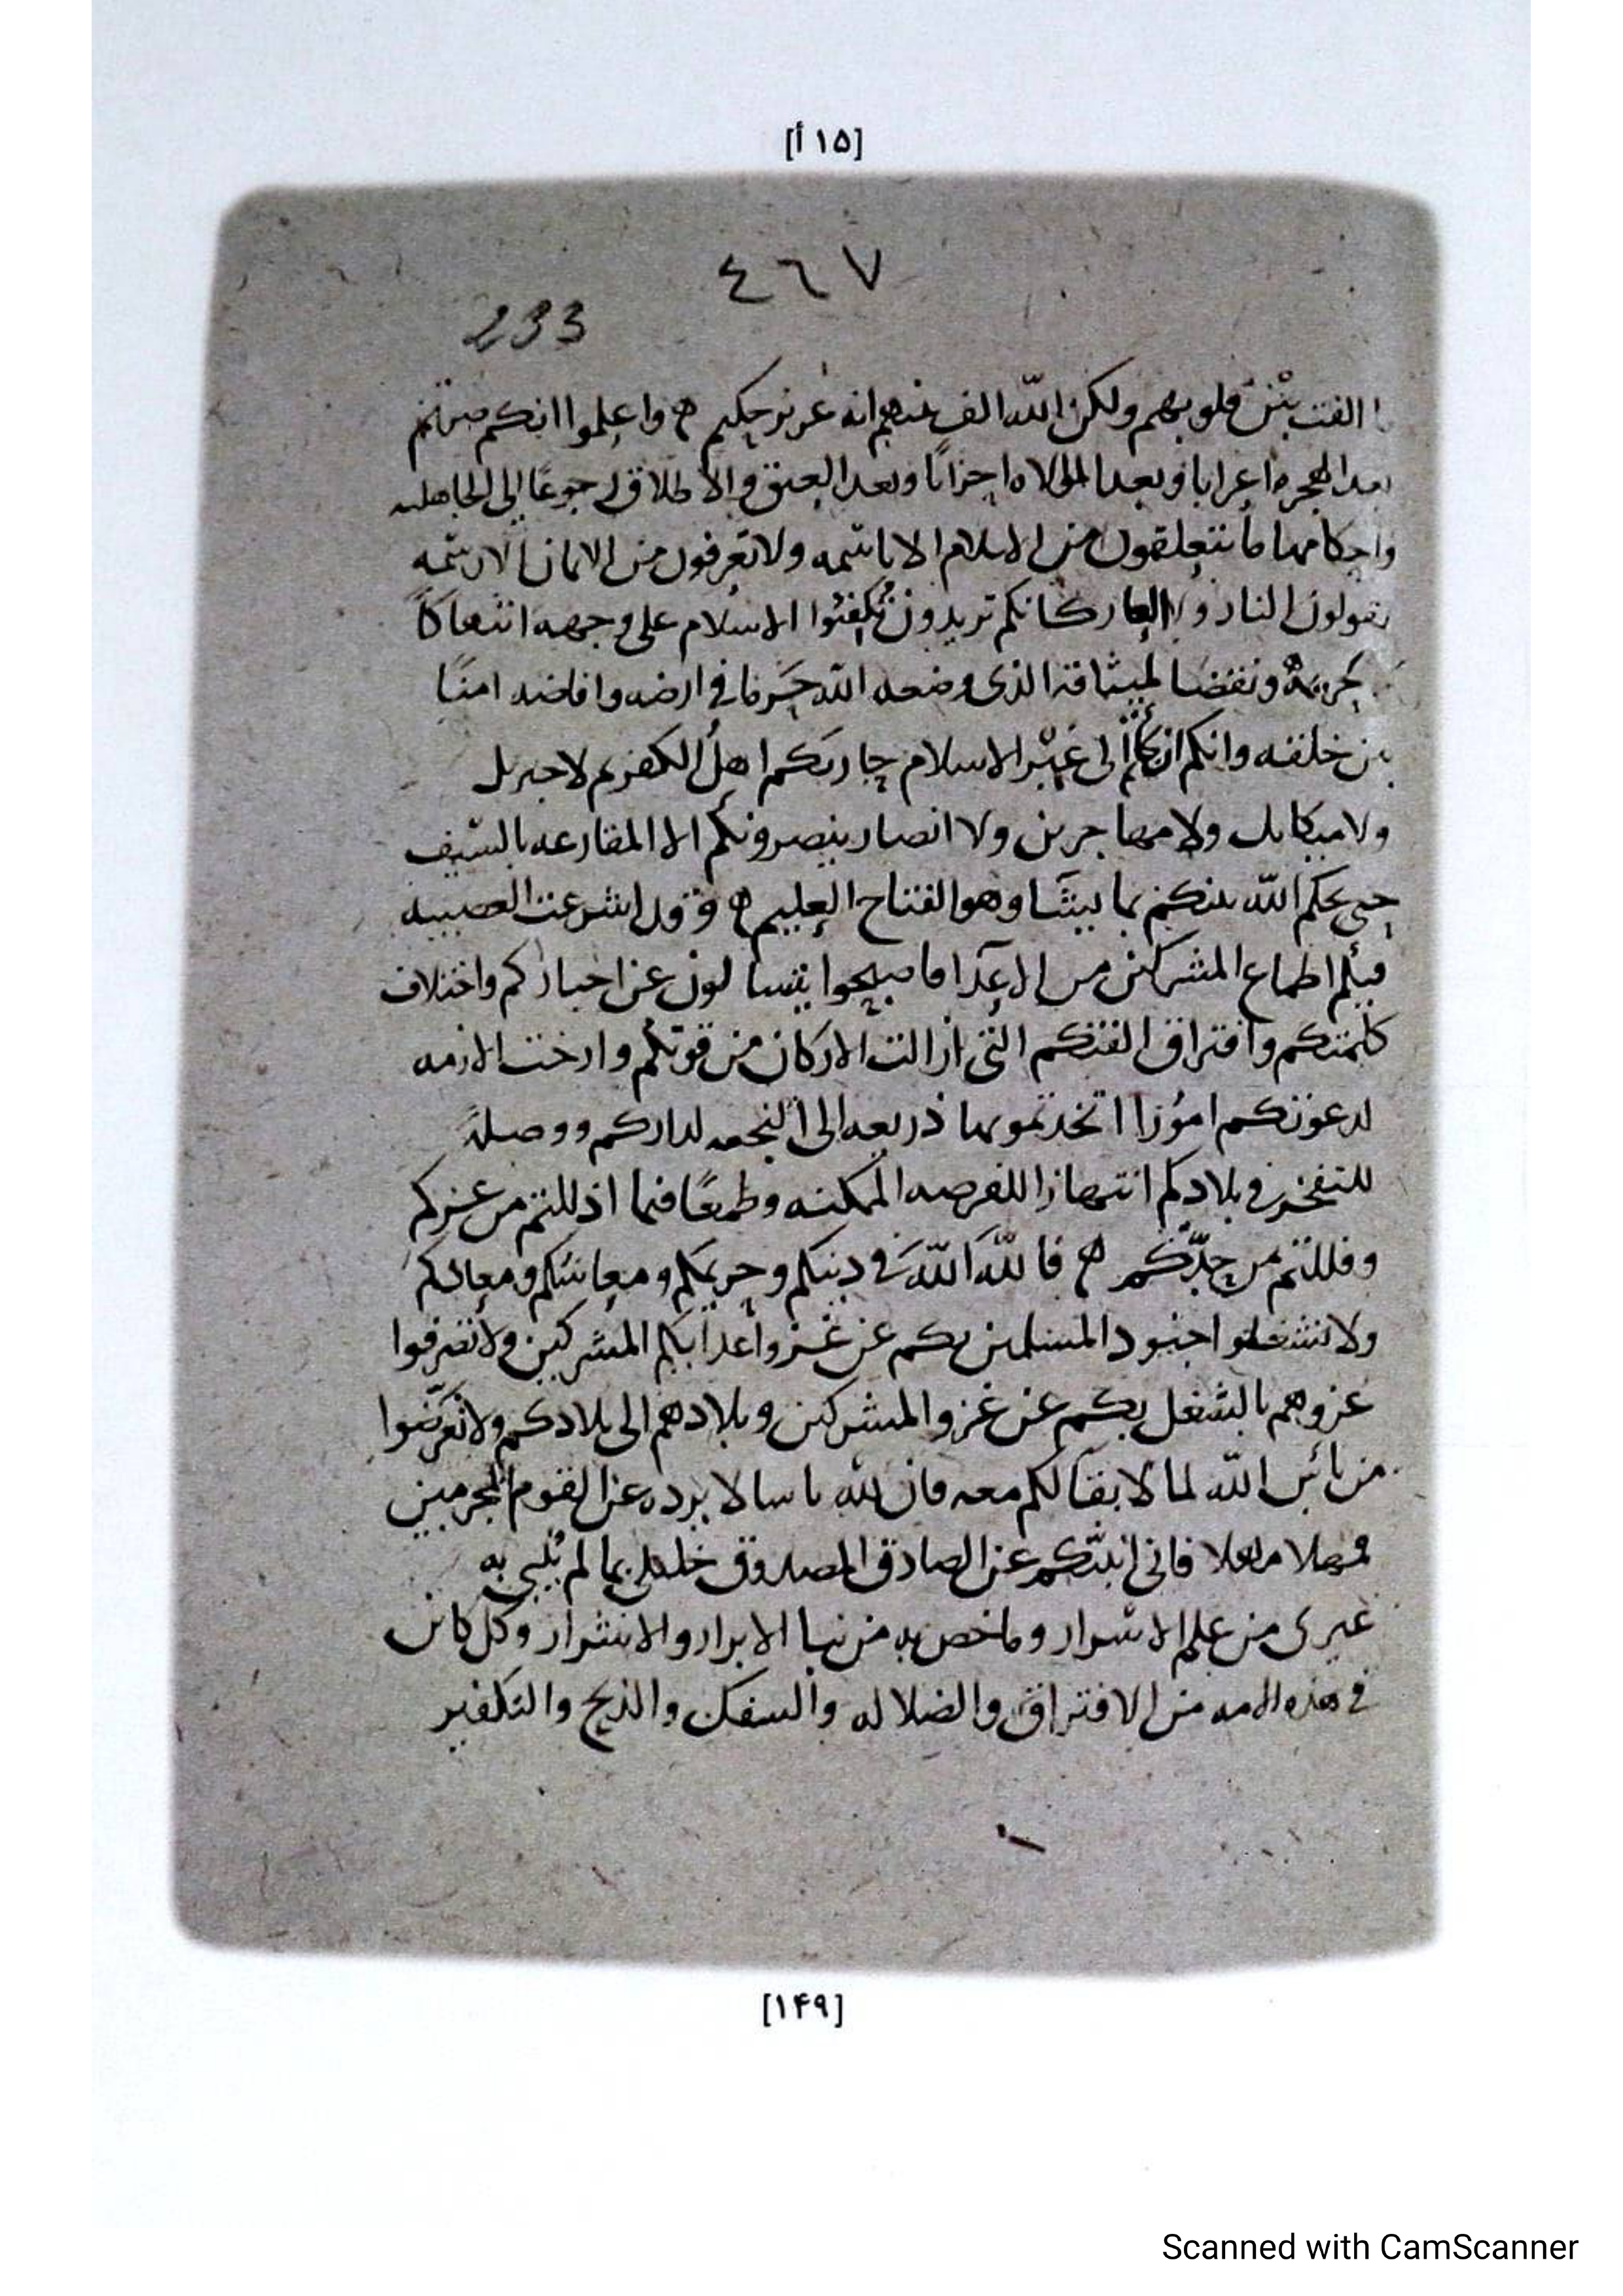 [١٥ أ]
٤٦٧
233
ما الفت بين قلوبهم ولكن الله الف بينهم انه عزيز حكيم ه واعلموا انكم صرتم
بعد الهجره اعرابا وبعد الموالاه احزابًا وبعد العتق والاطلاق رجوعًا الى الجاهليه
واحكامها ما تتعلقون من الاسلام الا باسمه ولا تعرفون من الايمان الا رسمه
تقولون النار ولا العار كانكم تريدون تُكفئوا الاسلام على وجهه انتهاكًا
لحريمه ونقضا لميثاقه الذى وضعه الله حَرما في ارضه وافاضه امنًا
بين خلقه وانكم ان لجأتم الى غيْر الاسلام حاربكم اهلُ الكفر ثم لا جبريل
ولا ميكايل ولا مهاجرين ولا انصار ينصرونكم الا المقارعه بالسّيف
حتى يحكم الله بينكم بما يشَا وهو الفتاح العليم ه وقد اشرعت العصبيه
فيكم اطماع المشركين من الاعدَا فاصبحوا يتسالون عن اخباركم واختلاف
كلمتكم وافتراق الفتكم التى ازالت الاركان من قوتكم وارخت الازمه
لدعوتكم امُورًا اتخذتموها ذريعه الى النجعه لداركم ووصلةً
للتفخر في بلادكم انتهازا للفرصه الممكنه وطمعًا فيما اذللتم من عزكم
وفللتم من حدّكم ه فاللهَ اللهَ في دينكم وحريمكم ومعايشكم ومعادكم
ولا تشغلوا جنود المسلمين بكم عن غزو اعدايكم المشركين ولا تصرفوا
غزوهم بالشغل بكم عن غزو المشركين وبلادهم الى بلادكم ولا تعرّضوا
من بائس الله لما لا بقا لكم معه فان لله باسا لا يرده عن القوم المجرمين
فمهلا مهلا فانى انبئكم عن الصادق المصدوق خليلى بما لم يُنبى به
غيرى من علم الاسرار وما خص به من نبا الابرار والاشرار وكل كاين
في هذه الامه من الافتراق والضلاله والسفك والذبح والتكفير
[١۴٩]
Scanned with CamScanner